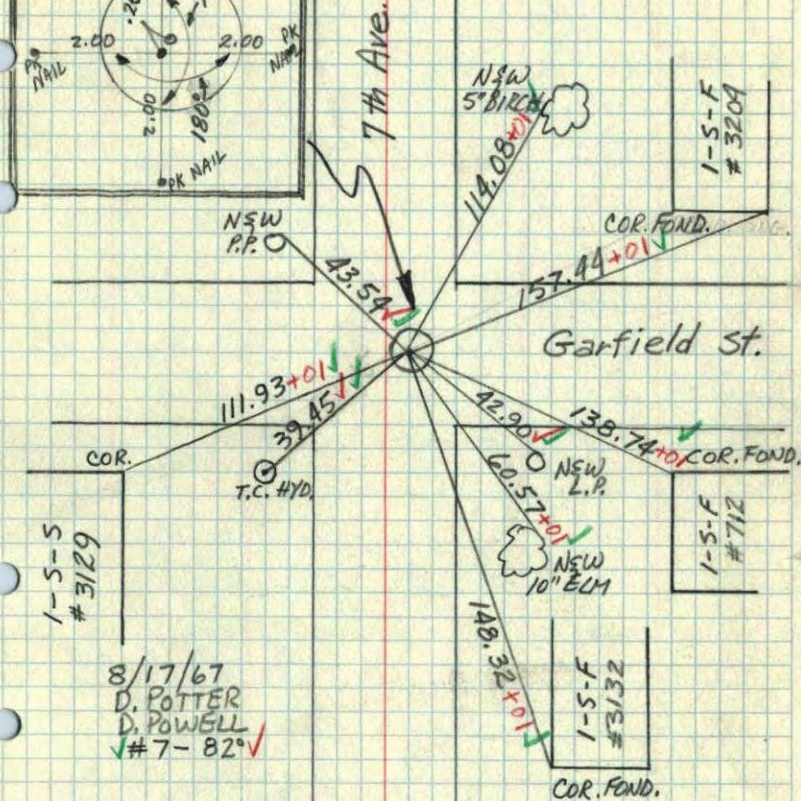 .20
2.00
2.00
PK
NAIL
PK
NAIL
2.00
180°
PK NAIL
7th Ave.
N&W
5" BIRCH
114.08+01
1-S-F
#3209
COR. FOND.
157.44+01
N&W
P.P.
43.54
Garfield St.
111.93+01
39.45
42.90
138.74+01
COR. FOND.
COR.
T.C. HYD.
N&W
L.P.
60.57+01
N&W
10" ELM
1-S-F
#712
1-S-S
#3129
148.32+01
1-S-F
#3132
COR. FOND.
8/17/67
D. POTTER
D. POWELL
✓#7- 82°✓